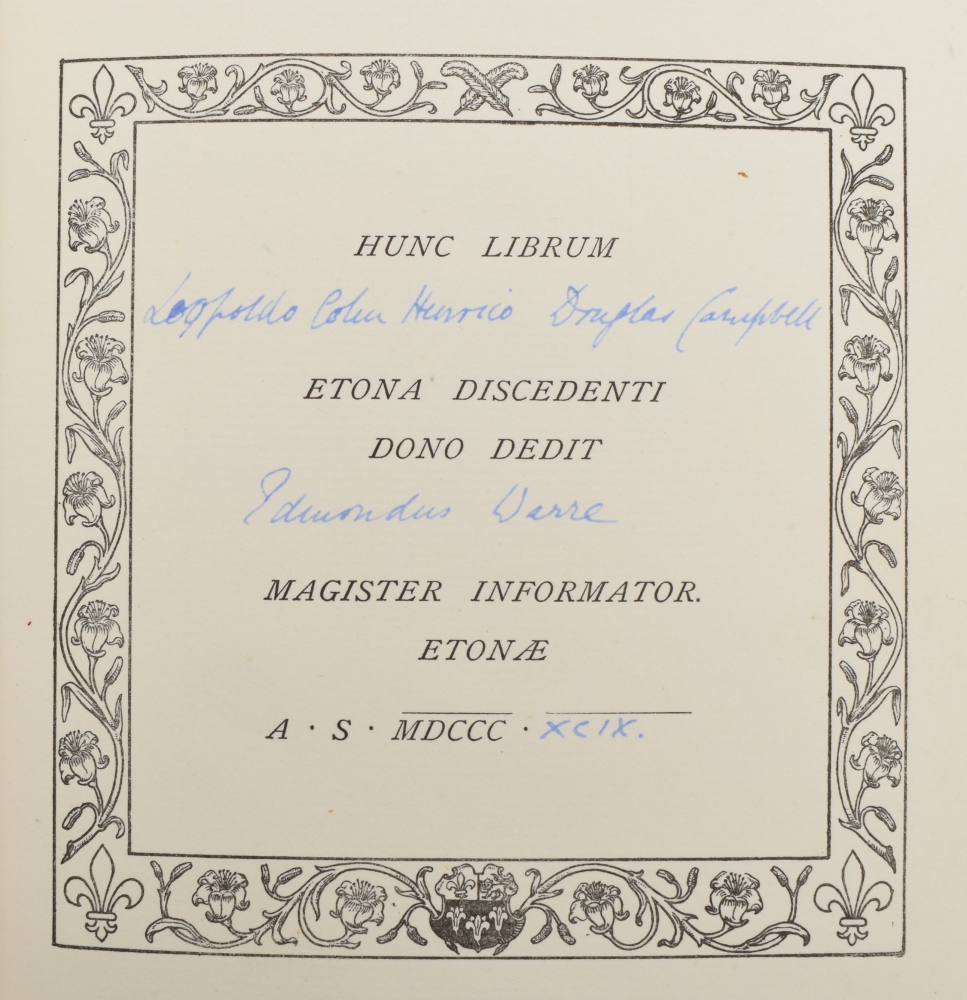 HUNC LIBRUM
Leopoldo Colin Henrico Douglas Campbell
ETONA DISCEDENTI
DONO DEDIT
Edmondus Warre
MAGISTER INFORMATOR.
ETONÆ
A · S · MDCCC · XCIX.